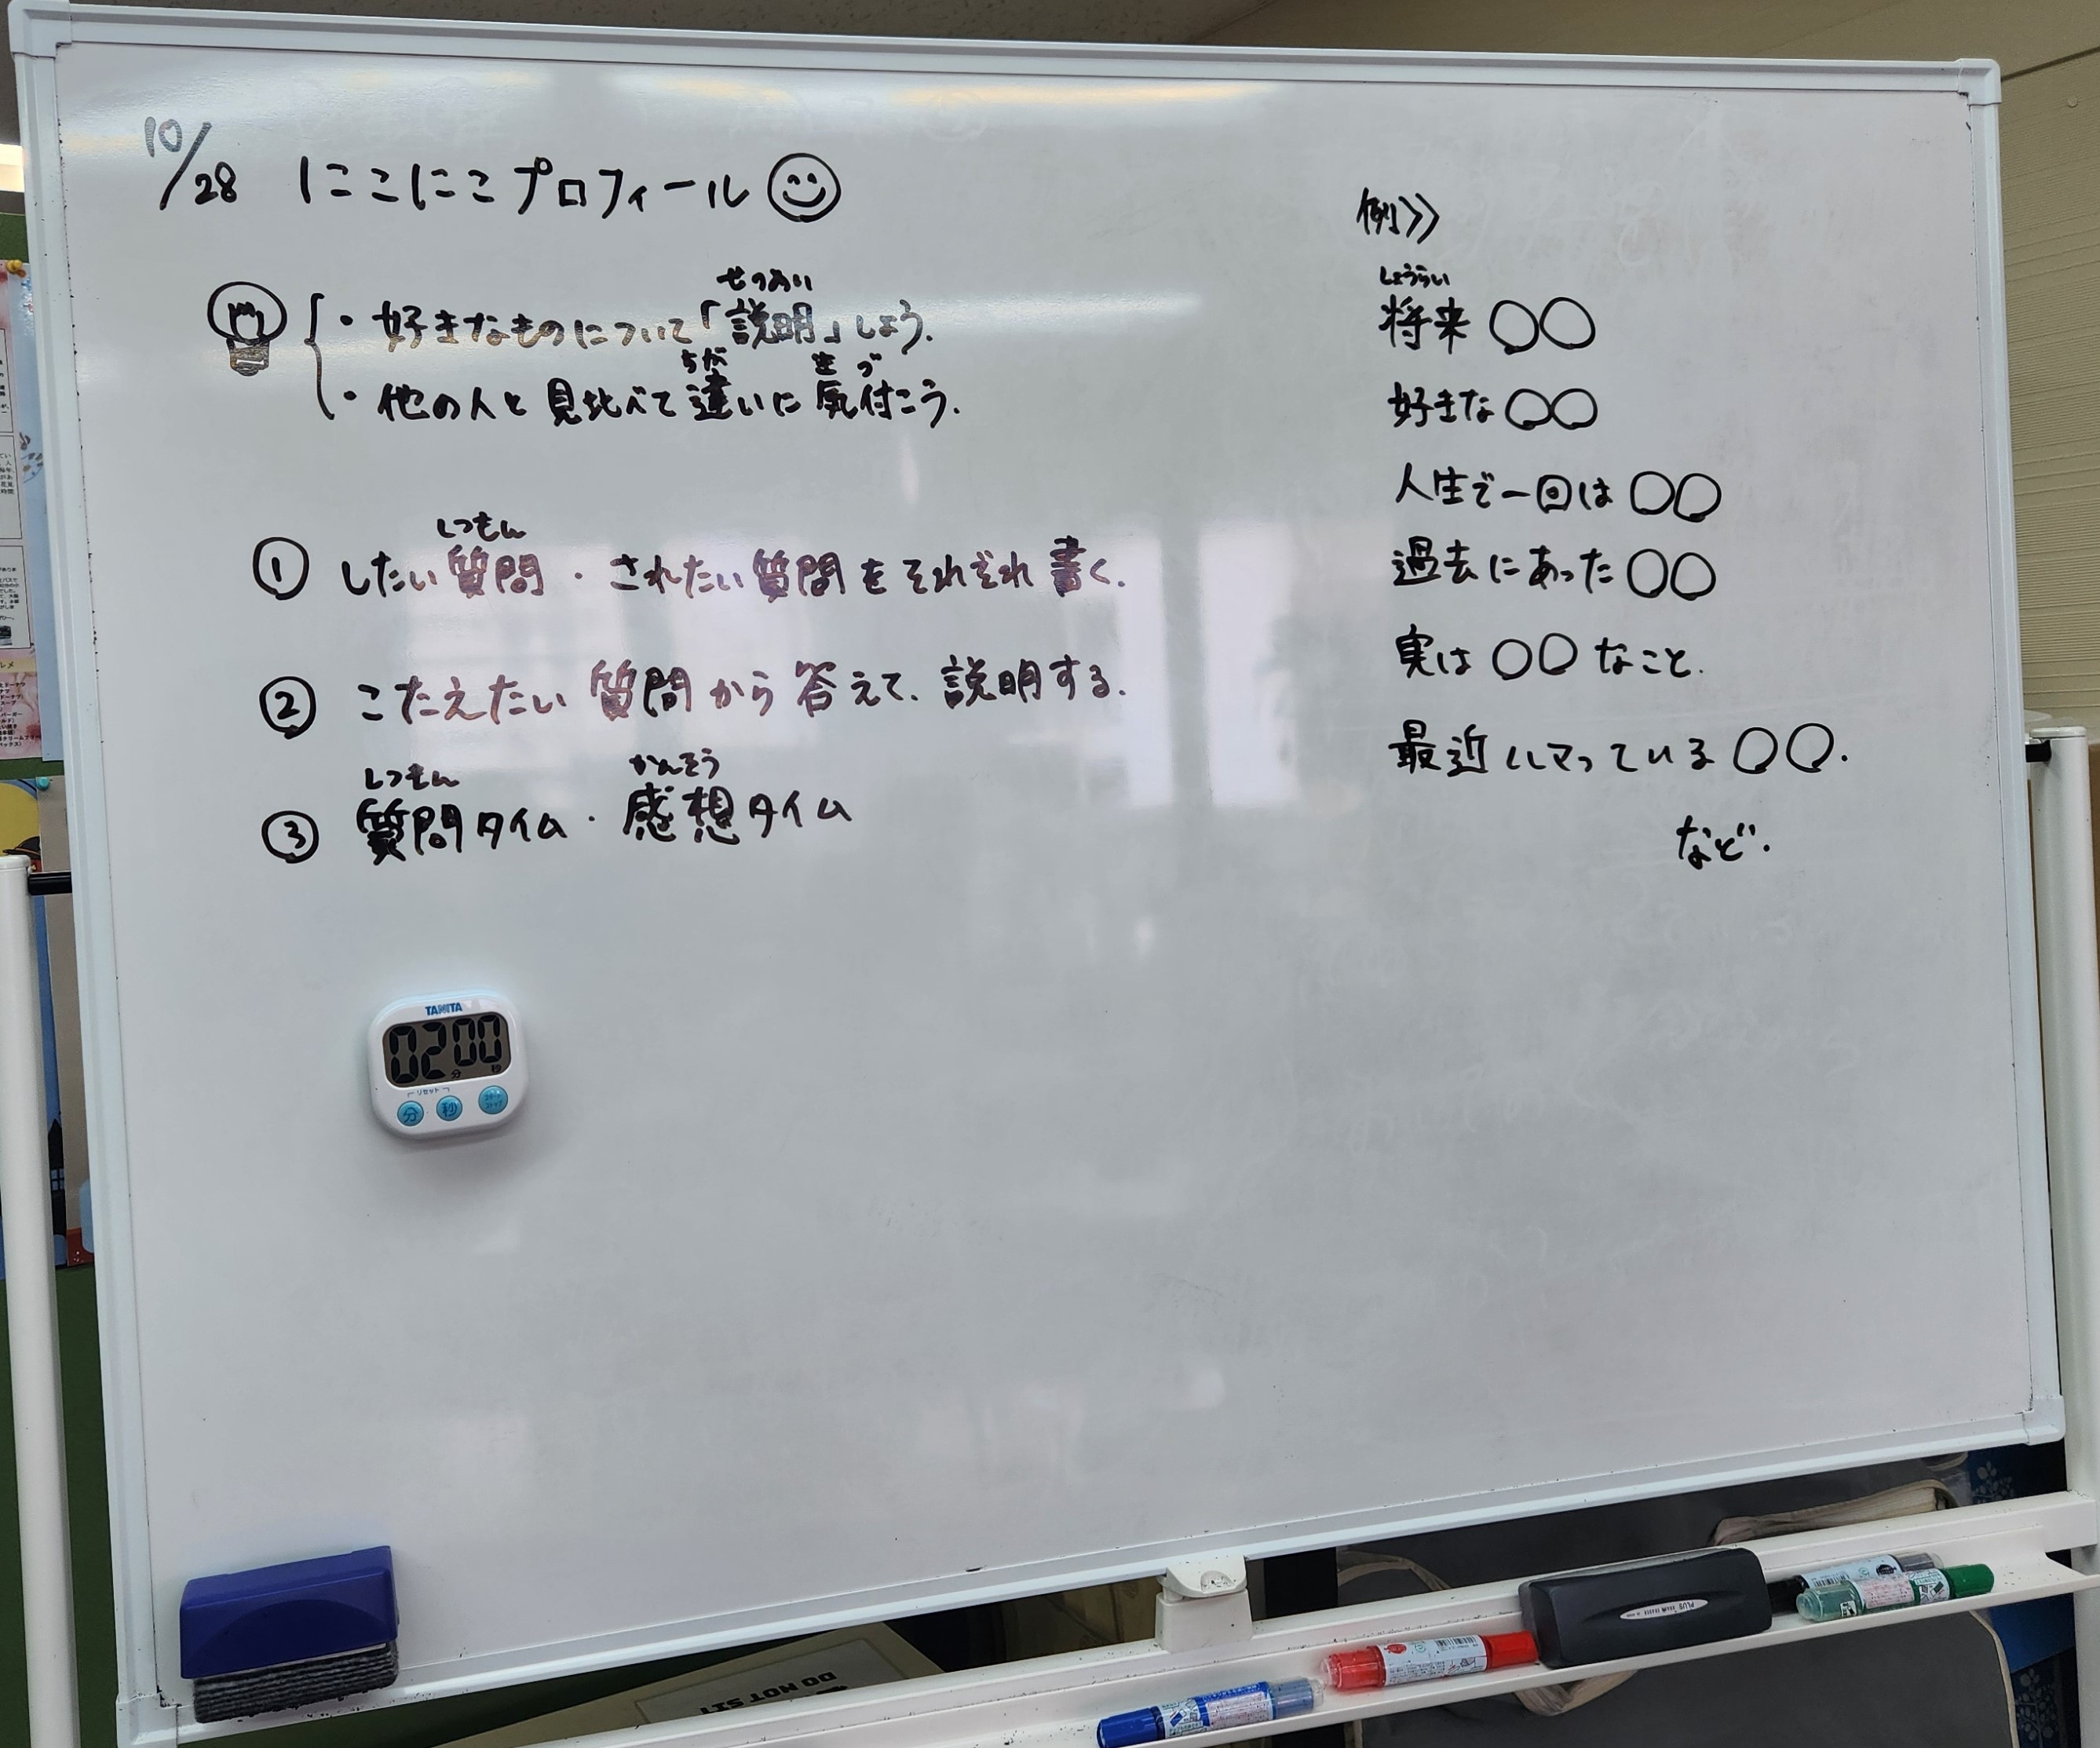 10/28 にこにこプロフィール
せつめい
・好きなものについて「説明」しよう.
ちが き づ
・他の人と見比べて違いに気付こう.
しつもん
① したい質問・されたい質問をそれぞれ書く.
② こたえたい質問から答えて、説明する.
しつもん かんそう
③ 質問タイム・感想タイム
例》
しょうらい
将来○○
好きな○○
人生で一回は○○
過去にあった○○
実は○○なこと.
最近ハマっている○○.
など.
TANITA
02 00
分 秒
リセット
分 秒
PLUS
DO NOT SIT